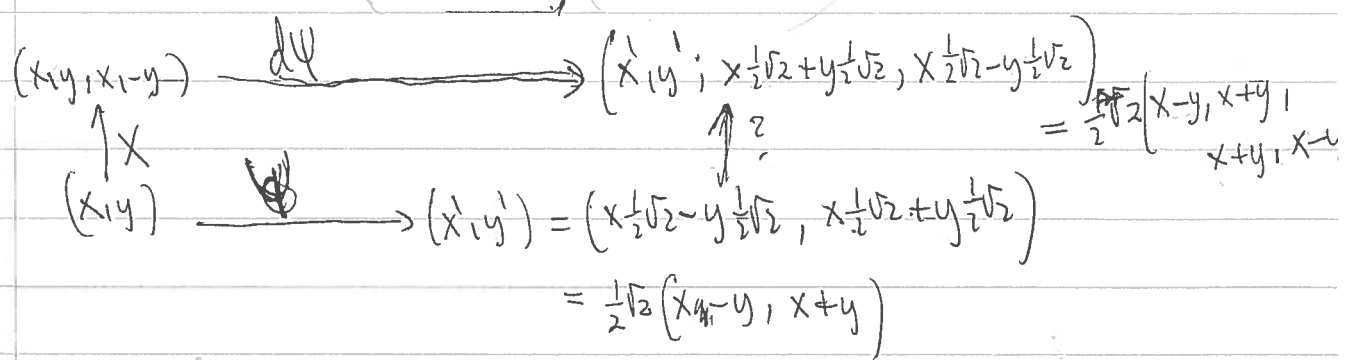 dψ
(x,y,x,-y) ⟶ (x',y'; x½√2+y½√2, x½√2-y½√2)
= ½√2(x-y, x+y,
x+y, x-
↑X ↑?
(x,y) ⟶ (x',y') = (x½√2-y½√2, x½√2+y½√2)
= ½√2(x-y, x+y)